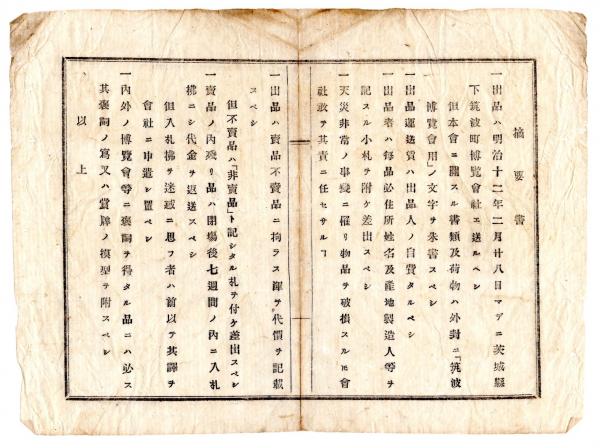 摘要書
一出品ハ明治十二年二月廿八日マデニ茨城縣
下筑波町博覽會社エ送ルヘシ
但本會ニ關スル書類及荷物ハ外封ニ「筑波
博覽會用」ノ文字ヲ朱書スベシ
一出品運送賃ハ出品人ノ自費タルベシ
一出品者ハ每品必住所姓名及產地製造人等ヲ
記スル小札ヲ附ケ差出スベシ
一天災非常ノ事變ニ罹リ物品ヲ破損スルㇳモ會
社敢テ其責ニ任セサルヿ
一出品ハ賣品不賣品ニ拘ラス渾テ代價ヲ記載
スベシ
但不賣品ハ「非賣品」ト記シタル札ヲ付ケ差出スベシ
一賣品ノ內殘リ品ハ閉場後七週間ノ內ニ入札
拂ニシ代金ヲ返送スベシ
但入札拂ヲ迷惑ニ思フ者ハ前以テ其譯ヲ
會社ニ申遣シ置ベシ
一內外ノ博覽會等ニ褒詞ヲ得タル品ニハ必ス
其褒詞ノ寫又ハ賞牌ノ模型ヲ附スベシ
以上